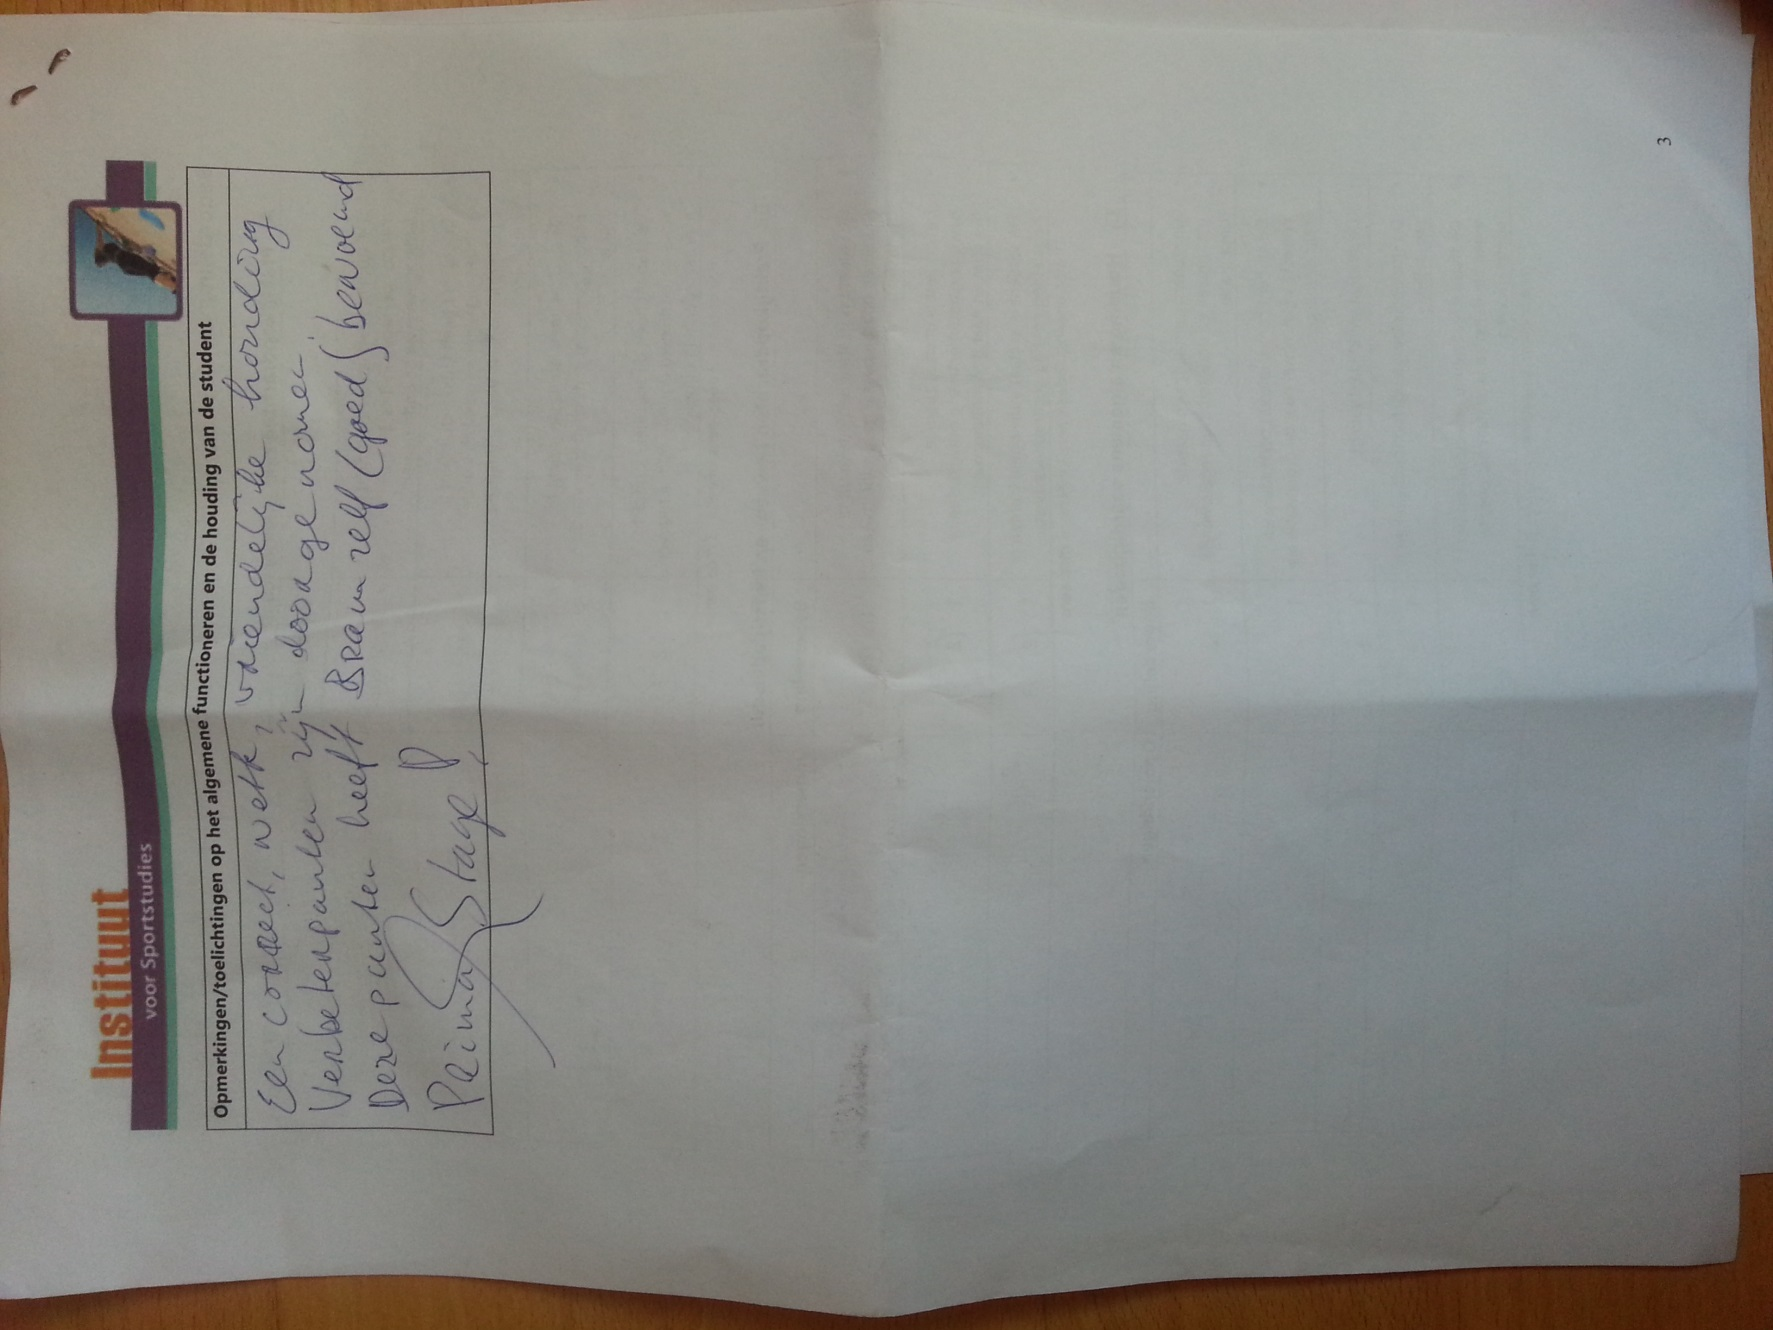 Instituut
voor Sportstudies
Opmerkingen/toelichtingen op het algemene functioneren en de houding van de student
Een correct, nette, vriendelijke houding
Verbeterpunten zijn doorgenomen,
Deze punten heeft Bram zelf (goed) benoemd
Prima Stage!
3